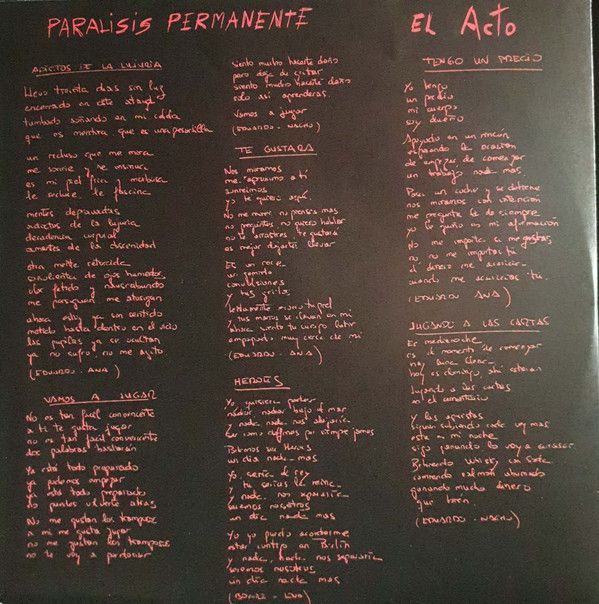 PARALISIS PERMANENTE
EL ACTO
ADICTOS DE LA LUJURIA
Llevo treinta dias sin luz
encerrado en este ataud
tumbado soñando en mi celda
que es mentira que es una pesadilla
un recluso que me mira
me sonrie y se insinua
es mi piel
le excita le fascina
mentes depravadas
adictos de la lujuria
decadencia corporal
amantes de la obscenidad
otra mente retorcida
de ojos humedos
olor fetido y nauseabundo
me persiguen me atacan
ahora estoy ya sin sentido
metido hasta dentro en el vicio
las pupilas ya se ocultan
ya no sufro no me agito
(EDUARDO - ANA)
VAMOS A JUGAR
No es tan facil convencerte
a ti te gusta jugar
no es tan facil convencerte
dos palabras bastaran
Ya esta todo preparado
ya podemos empezar
ya esta todo preparado
no puedes volverte atras
No me gustan los tramposos
a mi me gusta jugar
no me gustan los tramposos
no te voy a perdonar
siento mucho hacerte daño
pero deja de gritar
siento mucho hacerte daño
solo asi aprenderas.
Vamos a jugar
(EDUARDO - NACHO)
TE GUSTARA
Nos miramos
me aproximo a ti
sonreimos
yo te quiero aqui
No me mires ni pienses mas
no preguntes no quiero hablar
no te arrastres te gustara
es mejor dejarte llevar
Es un roce
un gemido
convulsiones
y tus gritos
tus manos se clavan en mi
ahora siento tu cuerpo latir
empapado muy cerca de mi
(EDUARDO - ANA)
HEROES
Yo quisiera poder
nadar nadar bajo el mar
y nada nada nos alejaria
ser como delfines por siempre jamas
Podemos ser Heroes
un dia nada mas
Yo seria el rey
tu serias la reina
y nada nos separaria
seremos nosotros
un dia nada mas
Yo yo puedo acordarme
estar contigo en Berlin
y nada, nada nos separaria
seremos nosotros
un dia nada mas
(BOWIE - ENO)
TENGO UN PRECIO
Yo tengo
un precio
mi cuerpo
soy dueño
Apoyado en un rincon
esperando la ocasion
de empezar de comenzar
un trabajo nada mas
Pasa un coche y se detiene
nos miramos con atencion
me pregunta lo de siempre
yo le guiño en mi afirmacion
No me importa si me gustas
no no me importas tu
el dinero me acaricia
cuando me acaricias tu
(EDUARDO ANA)
JUGANDO A LAS CARTAS
Es medianoche
es el momento de comenzar
hay luna llena
hoy es domingo, ahi estaran
Jugando a las cartas
en el cementerio
Y las apuestas
siguen subiendo cada vez mas
esta es mi noche
sigo ganando lo voy a conseguir
Bebiendo whisky con soda
comiendo salmon ahumado
ganando mucho dinero
que bien.
(EDUARDO - NACHO)